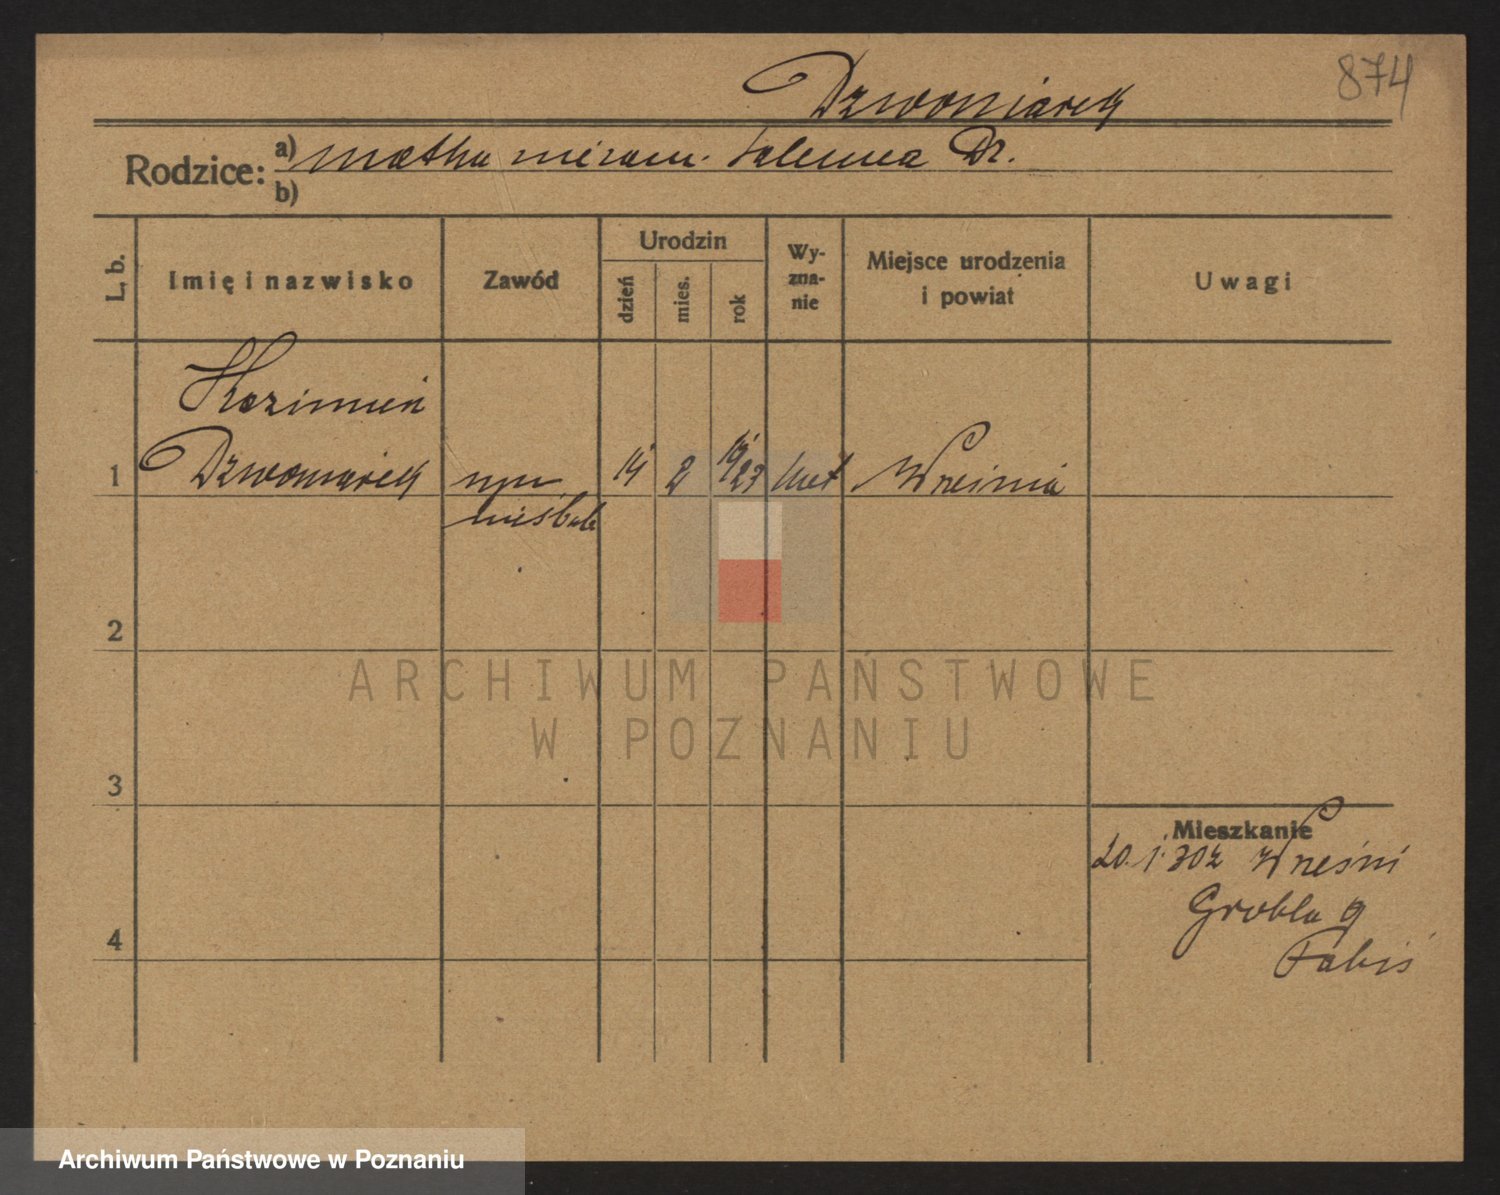 874
Dzwoniarek
Rodzice: a) matka niezam. Salomea Dz.
b)
L. b. Imię i nazwisko Zawód Urodzin dzień mies. rok Wy-zna-nie Miejsce urodzenia i powiat Uwagi
Kazimierz
1 Dzwoniarek 14 2 1923 kat Września
2
ARCHIWUM PAŃSTWOWE
W POZNANIU
3
Mieszkanie
20. 1. 302 Wrześni
Grobla 9
4
Archiwum Państwowe w Poznaniu